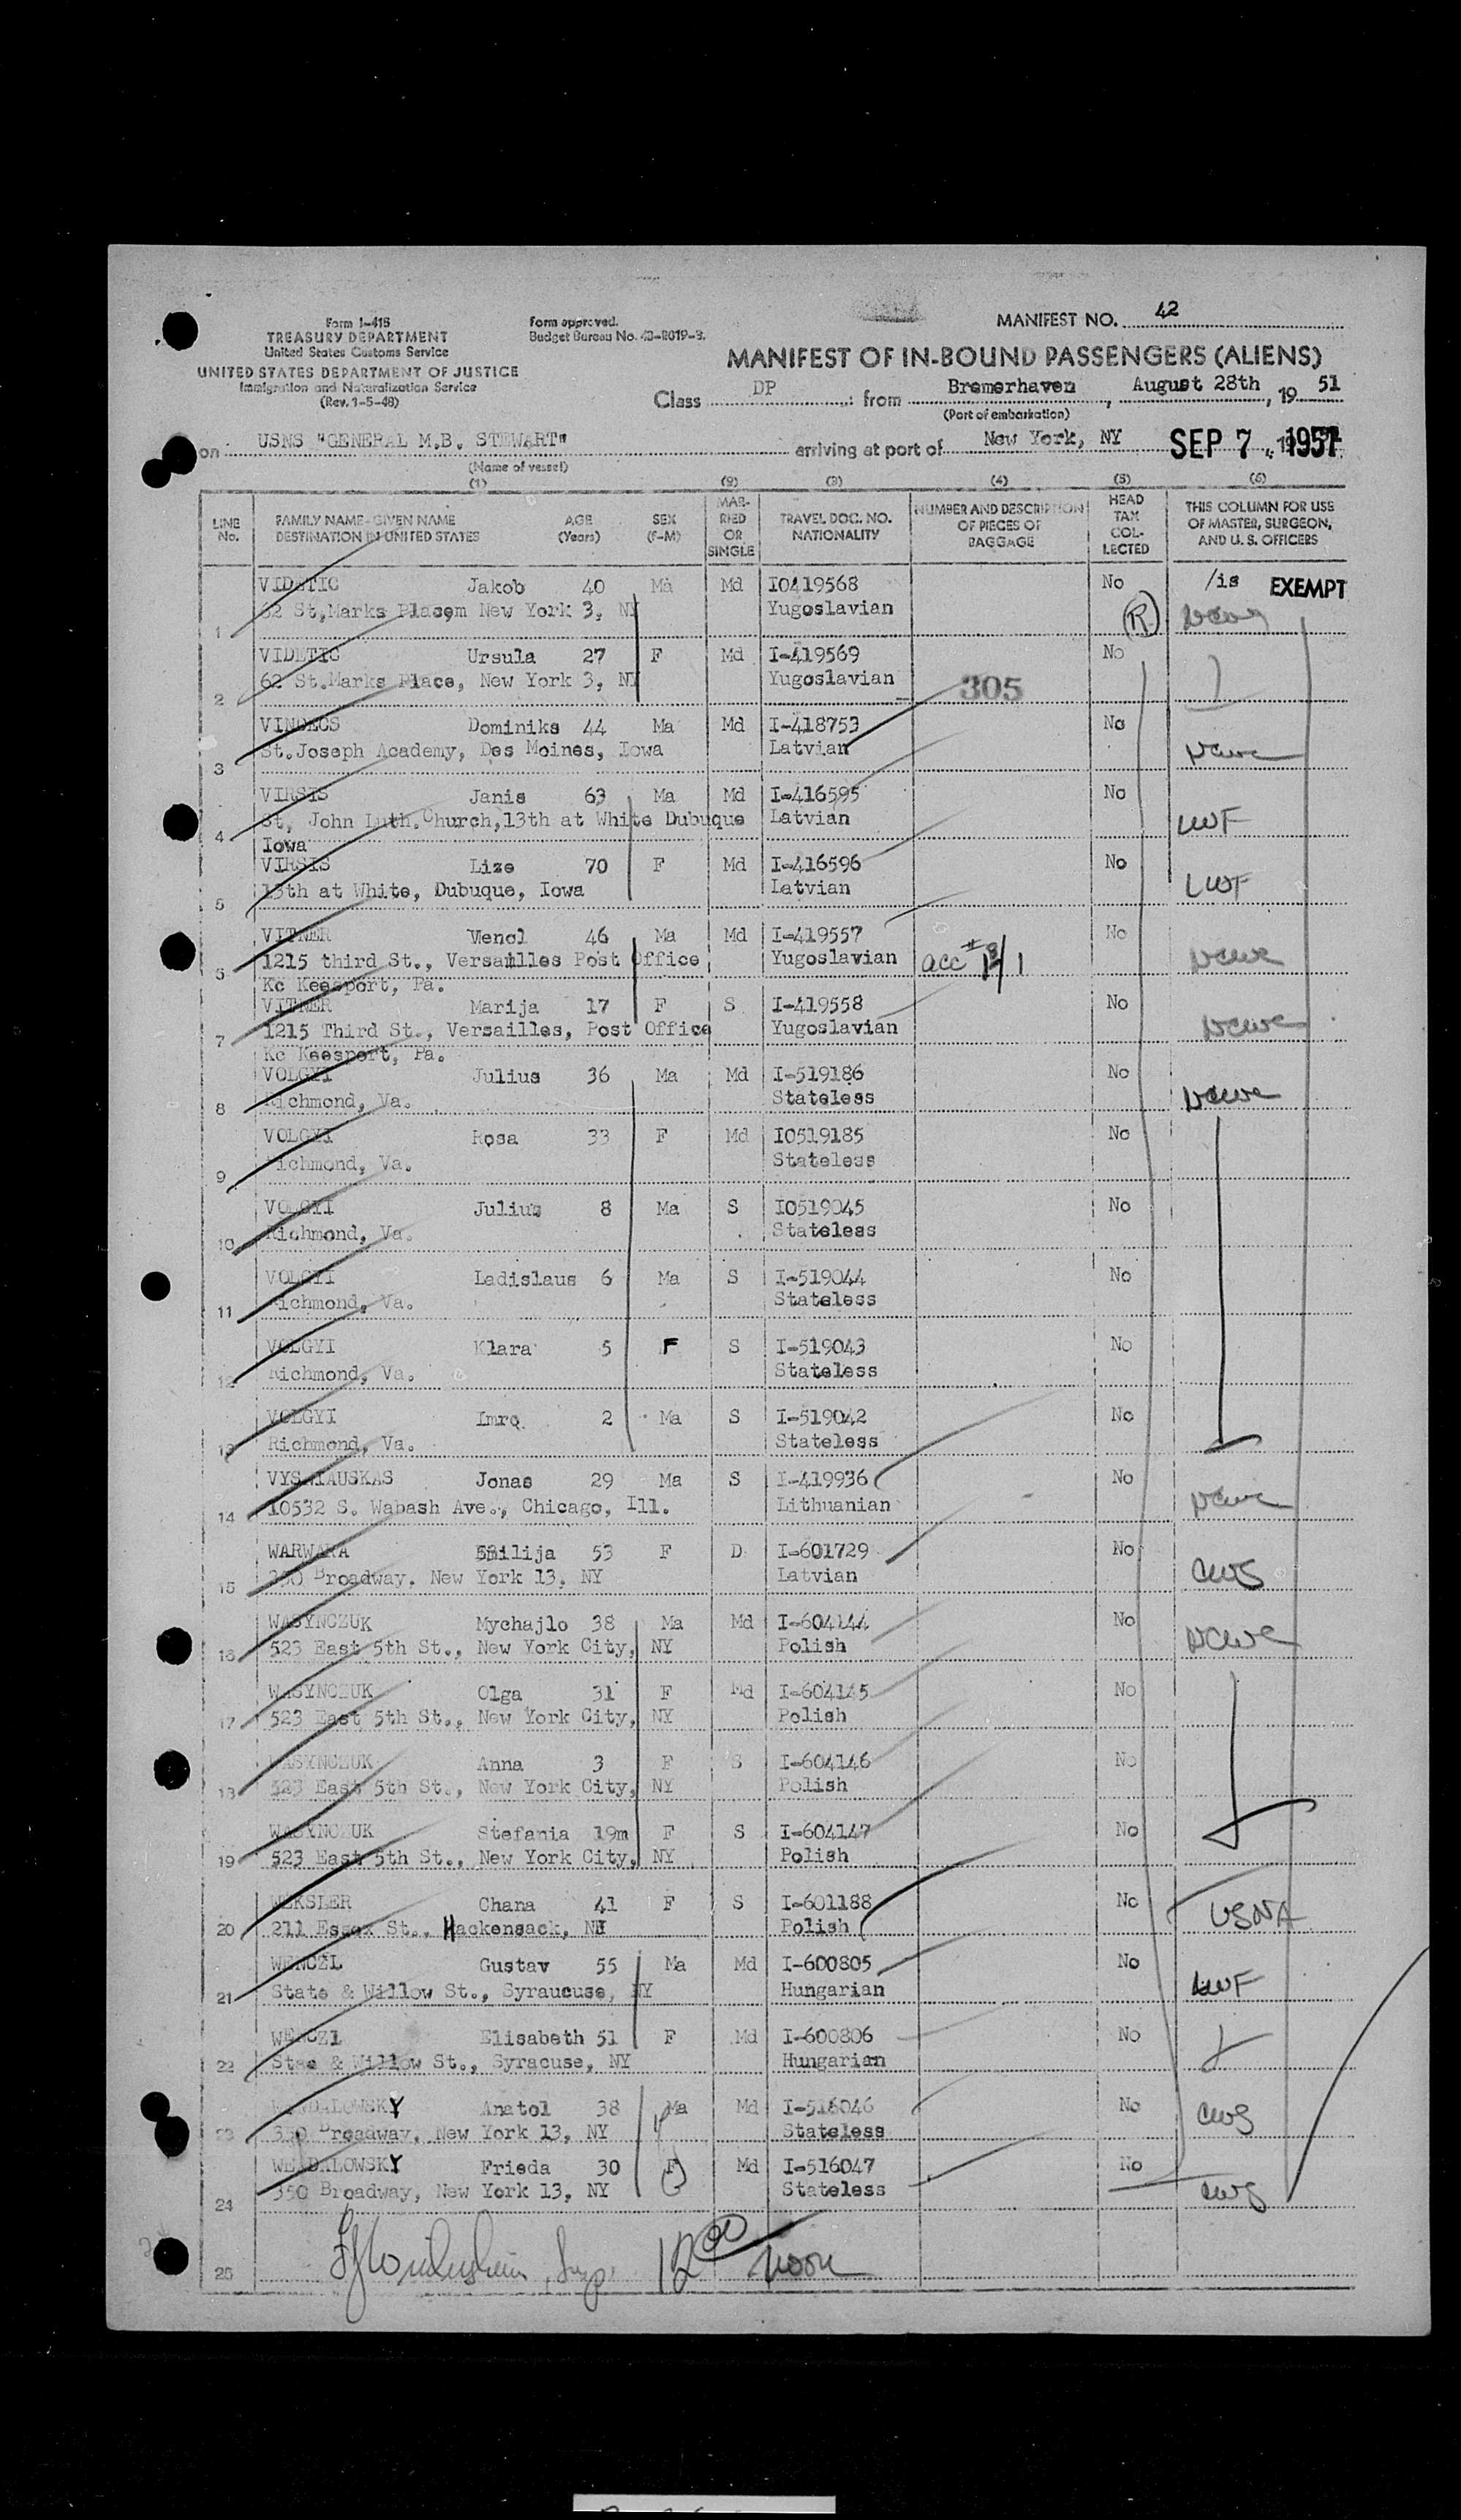 Form I-418
TREASURY DEPARTMENT
United States Customs Service
UNITED STATES DEPARTMENT OF JUSTICE
Immigration and Naturalization Service
(Rev. 1-5-48)
Form approved.
Budget Bureau No. 43-R019-3.
MANIFEST NO. 42
MANIFEST OF IN-BOUND PASSENGERS (ALIENS)
Class DP : from Bremerhaven, August 28th, 19 51
(Port of embarkation)
on USNS "GENERAL M.B. STEWART" arriving at port of New York, NY SEP 7, 1951
(Name of vessel)
(1) (2) (3) (4) (5) (6)
LINE No. FAMILY NAME-GIVEN NAME DESTINATION IN UNITED STATES AGE (Years) SEX (F-M) MARRIED OR SINGLE TRAVEL DOC. NO. NATIONALITY NUMBER AND DESCRIPTION OF PIECES OF BAGGAGE HEAD TAX COLLECTED THIS COLUMN FOR USE OF MASTER, SURGEON, AND U. S. OFFICERS
VIDETIC Jakob 40 Ma Md I0419568 No /is EXEMPT
1 62 St,Marks Placem New York 3, NY Yugoslavian R ncwc
VIDETIC Ursula 27 F Md I-419569 No
2 62 St.Marks Place, New York 3, NY Yugoslavian 305
VINDECS Dominiks 44 Ma Md I-418753 No
3 St.Joseph Academy, Des Moines, Iowa Latvian ncwc
VIRSIS Janis 63 Ma Md I-416595 No
4 St, John Luth.Church,13th at White Dubuque Latvian LWF
Iowa
VIRSIS Lize 70 F Md I-416596 No
5 13th at White, Dubuque, Iowa Latvian LWF
VITNER Vencl 46 Ma Md I-419557 No
6 1215 third St., Versailles Post Office Yugoslavian acc # ncwc
Kc Keesport, Pa.
VITNER Marija 17 F S I-419558 No
7 1215 Third St., Versailles, Post Office Yugoslavian ncwc
Kc Keesport, Pa.
VOLGYI Julius 36 Ma Md I-519186 No
8 Richmond, Va. Stateless ncwc
VOLGYI Rosa 33 F Md I0519185 No
9 Richmond, Va. Stateless
VOLGYI Julius 8 Ma S I0519045 No
10 Richmond, Va. Stateless
VOLGYI Ladislaus 6 Ma S I-519044 No
11 Richmond, Va. Stateless
VOLGYI Klara 5 F S I-519043 No
12 Richmond, Va. Stateless
VOLGYI Imre 2 Ma S I-519042 No
13 Richmond, Va. Stateless
VYSNIAUSKAS Jonas 29 Ma S I-419936 No
14 10532 S. Wabash Ave., Chicago, Ill. Lithuanian ncwc
WARWARA Emilija 53 F D I-601729 No
15 350 Broadway. New York 13, NY Latvian cws
WASYNCZUK Mychajlo 38 Ma Md I-604144 No
16 523 East 5th St., New York City, NY Polish ncwc
WASYNCZUK Olga 31 F Md I-604145 No
17 523 East 5th St., New York City, NY Polish
WASYNCZUK Anna 3 F S I-604146 No
18 523 East 5th St., New York City, NY Polish
WASYNCZUK Stefania 19m F S I-604147 No
19 523 East 5th St., New York City, NY Polish
WEKSLER Chana 41 F S I-601188 No
20 211 Essex St., Hackensack, NJ Polish USNA
WENCZL Gustav 55 Ma Md I-600805 No
21 State & Willow St., Syraucuse, NY Hungarian LWF
WENCZl Elisabeth 51 F Md I-600806 No
22 Stae & Willow St., Syracuse, NY Hungarian
WENDALOWSKY Anatol 38 Ma Md I-516046 No
23 350 Broadway, New York 13, NY Stateless cws
WENDALOWSKY Frieda 30 F Md I-516047 No
24 350 Broadway, New York 13, NY Stateless cws
25 Insp. 12 00 noon